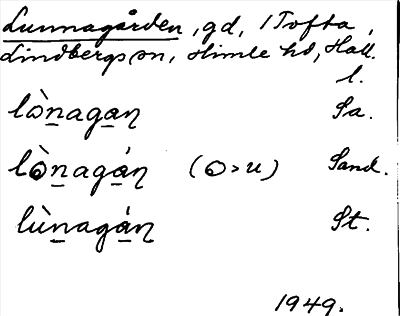 Lunnagården, gd, i Tofta,
Lindbergs sn, Himle hd, Hall.
l.
lɷ̀n̲aga̲ɳ Sa.
lɷ̀n̲agá̲ɳ (ɷ > u) Sand.
lùn̲agá̲ɳ St.
1949.